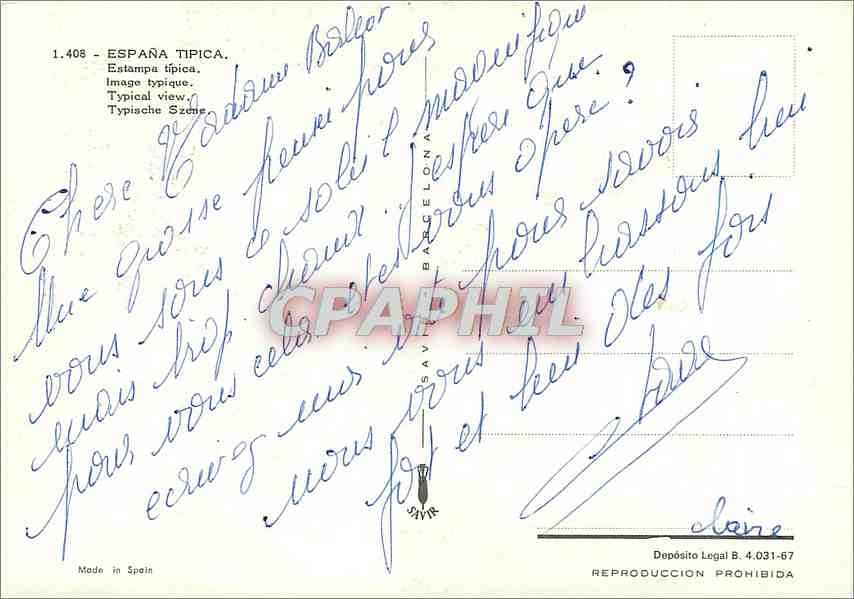 1.408 - ESPAÑA TIPICA.
Estampa típica.
Image typique.
Typical view.
Typische Szene.
Chere Madame
Une grosse pensée pour
vous sous ce soleil magnifique
mais trop chaud. J'espère que
pour vous cela êtes vous opéré?
ecrivez moi pour savoir
nous vous embrassons bien
fort et bien des fois
Claire
SAVIR BARCELONA
SAVIR
CPAPHIL
Made in Spain
Depósito Legal B. 4.031-67
REPRODUCCION PROHIBIDA